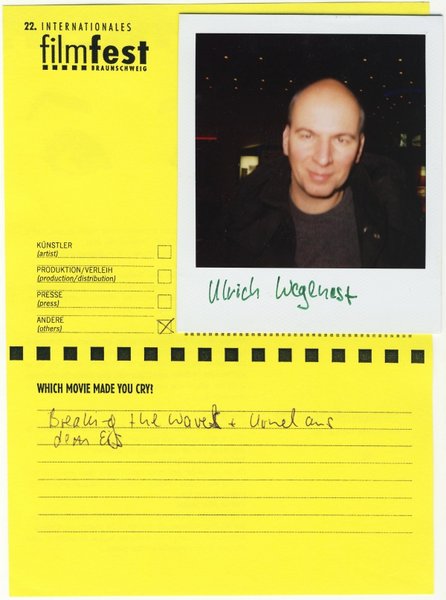 22. INTERNATIONALES
filmfest
BRAUNSCHWEIG
Ulrich Wegenast
KÜNSTLER
(artist)
PRODUKTION/VERLEIH
(production/distribution)
PRESSE
(press)
ANDERE
(others)
WHICH MOVIE MADE YOU CRY?
Breaking the Waves +
dem Eis